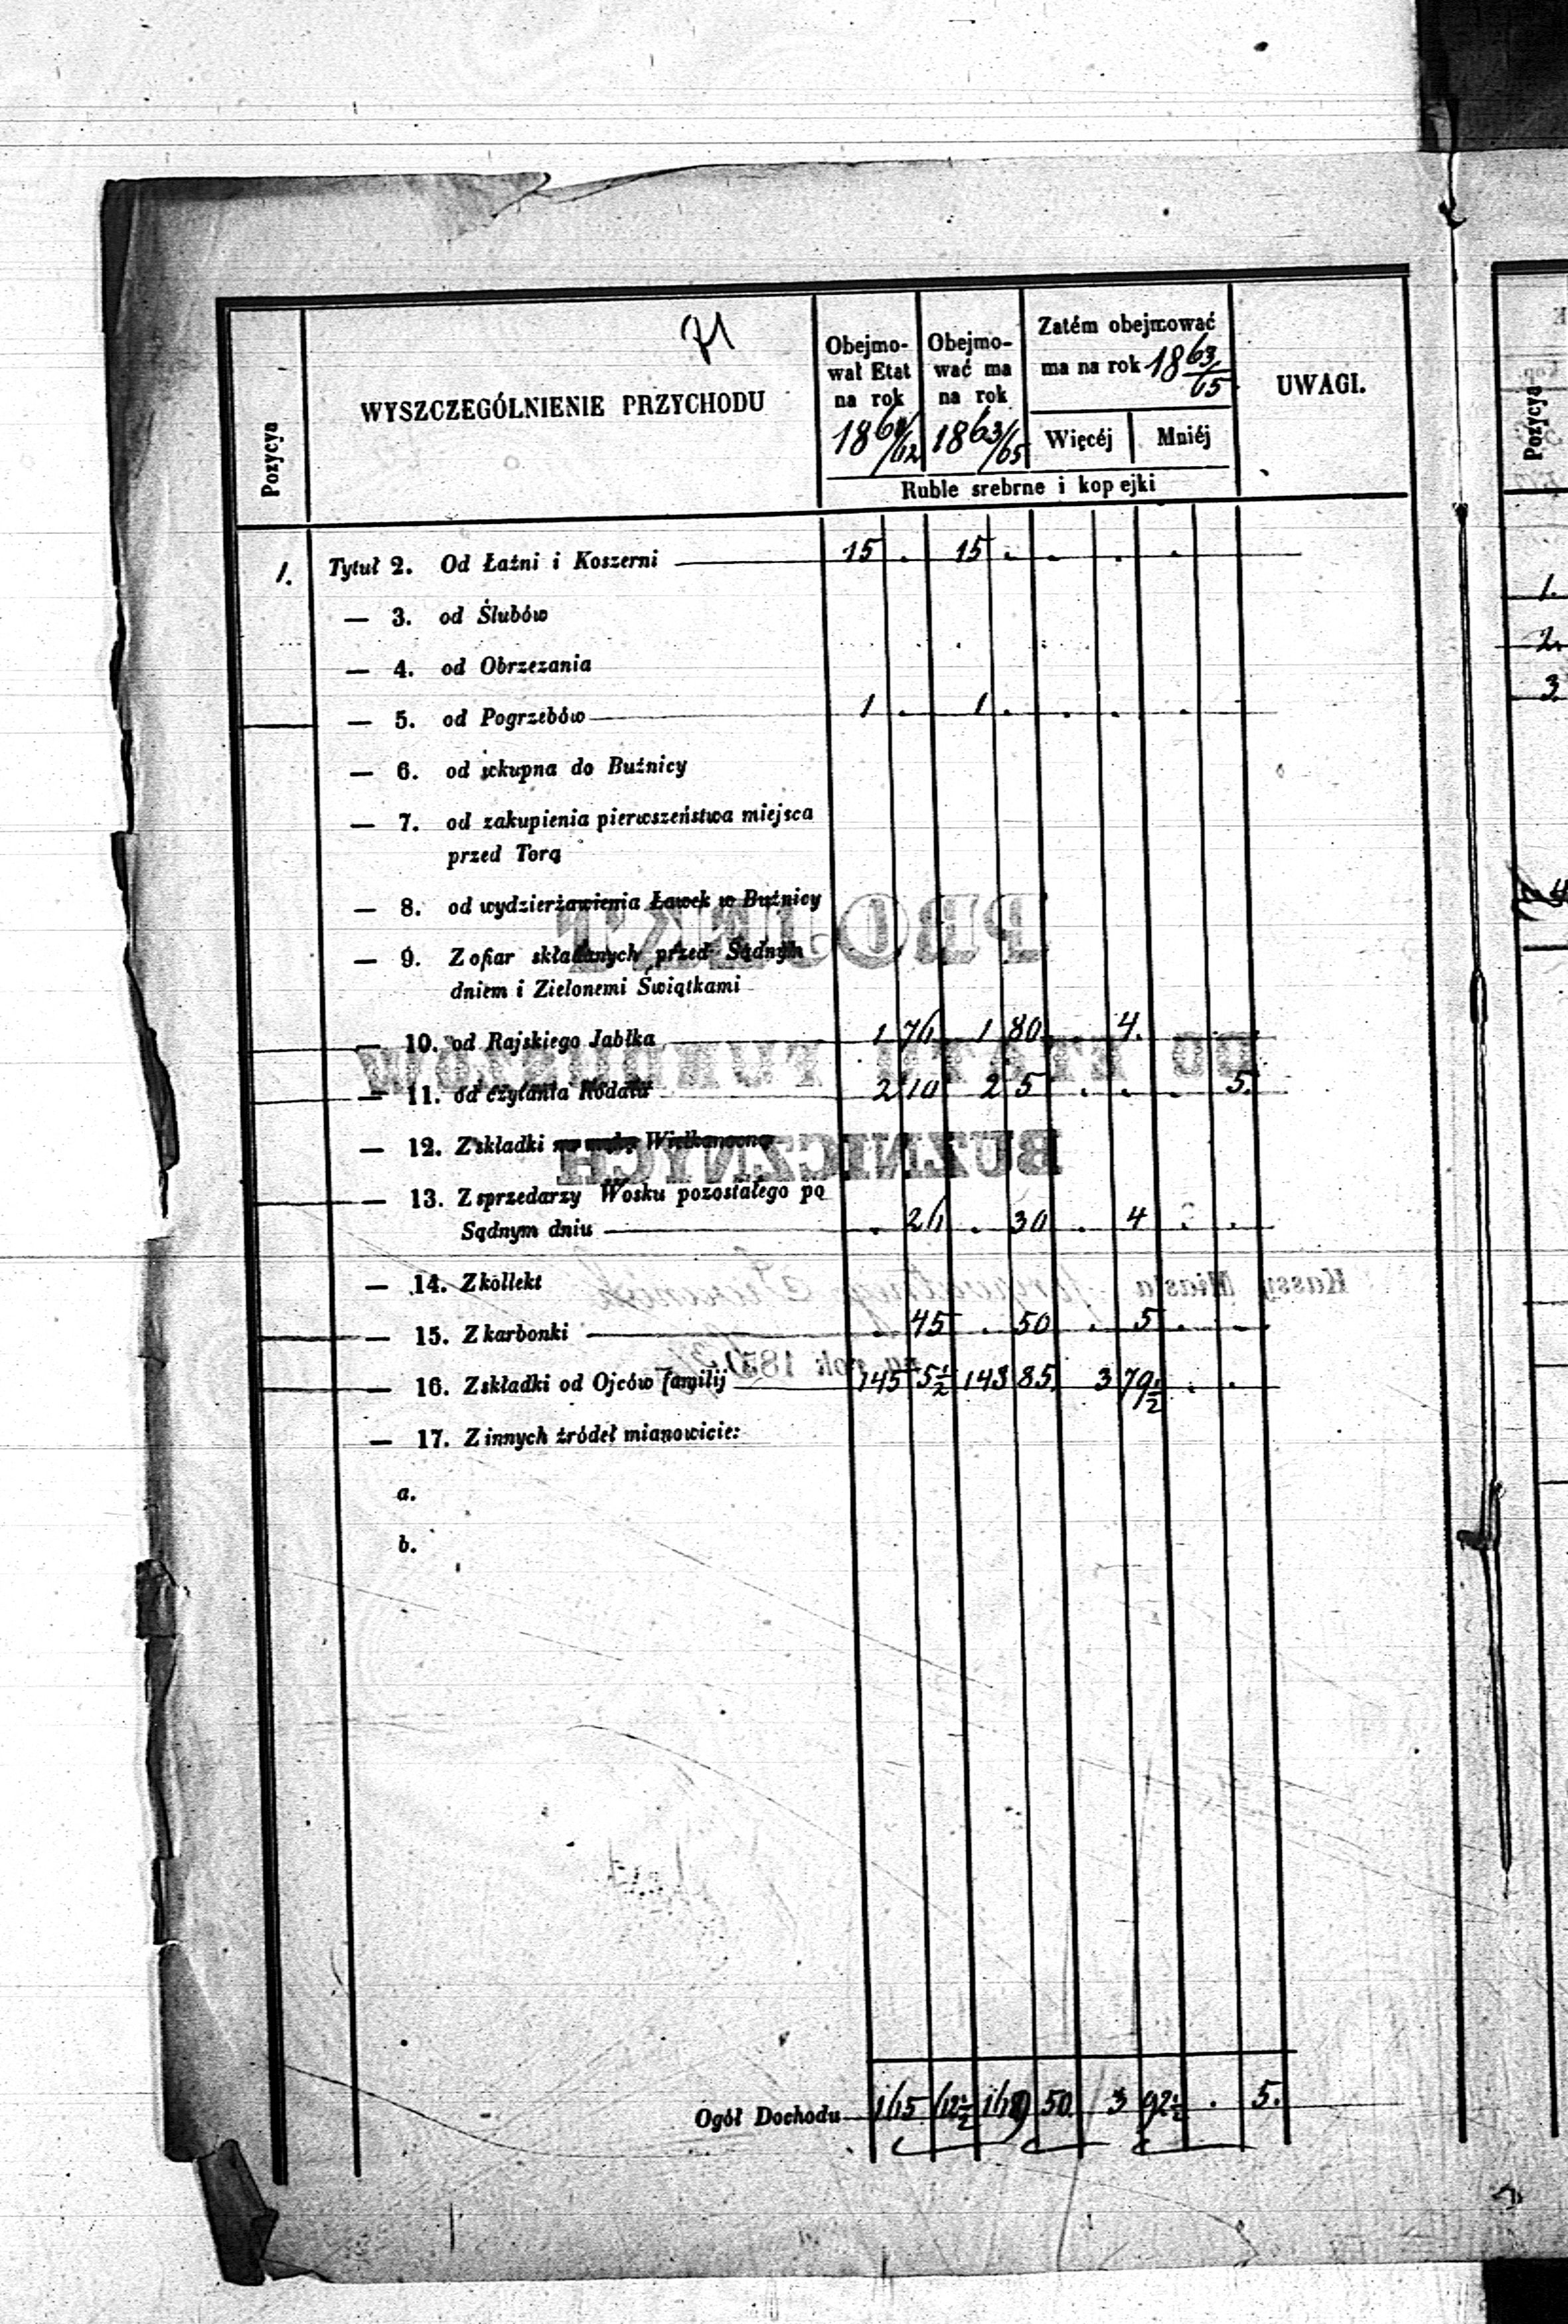 Pozycya
WYSZCZEGÓLNIENIE PRZYCHODU
Obejmo-
wał Etat
na rok
Obejmo-
wać ma
na rok
1863/65
Zatém obejmować
ma na rok 1863/65
Więcéj Mniéj
UWAGI.
Ruble srebrne i kopejki
1. Tytuł 2. Od Łaźni i Koszerni 15 . 15 . . . .
— 3. od Ślubów
— 4. od Obrzezania
— 5. od Pogrzebów 1 . 1 . . . .
— 6. od wkupna do Buźnicy
— 7. od zakupienia pierwszeństwa miejsca
przed Torą
— 8. od wydzierżawienia Ławek w Buźnicy
— 9. Z ofiar składanych przed Sądnym
dniem i Zielonemi Świątkami
— 10. od Rajskiego Jabłka 1 76 1 80 . 4 . .
— 11. od czytania Rodału 2 10 2 5 . . . 5.
— 12. Z składki na mąkę Wielkanocną
— 13. Z sprzedarzy Wosku pozostałego po
Sądnym dniu . 26 . 30 . 4 . .
— 14. Z kollekt
— 15. Z karbonki . 45 . 50 . 5 . .
— 16. Z składki od Ojców familij 145 5½ 148 85. 3 79½ . .
— 17. Z innych źródeł mianowicie:
a.
b.
Ogół Dochodu 165 62½ 169 50. 3 92½ . 5.
Pozycya
1.
2.
3.
4